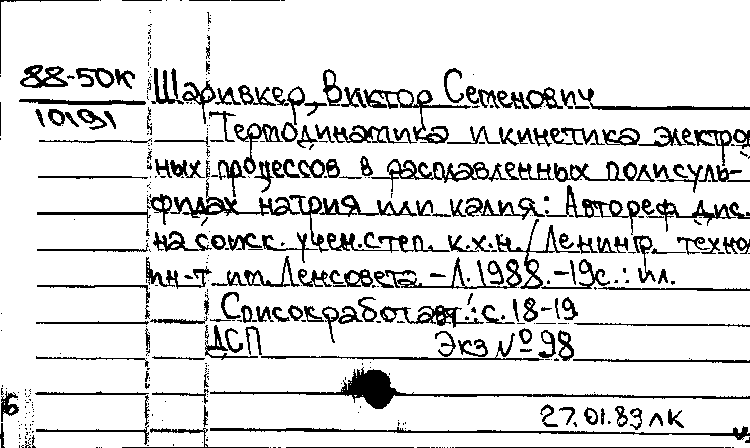 88-50к Шаривкер, Виктор Семенович
10191
Термодинамика и кинетика электрод
ных процессов в расплавленных полисуль-
фидах натрия или калия: Автореф. дис.
на соиск. учен. степ. к.х.н. / Ленингр. техно
ин-т им. Ленсовета. - Л. 1988. - 19с.: ил.
Список работ авт.: с. 18-19
ДСП Экз № 98
6
27.01.89 лк